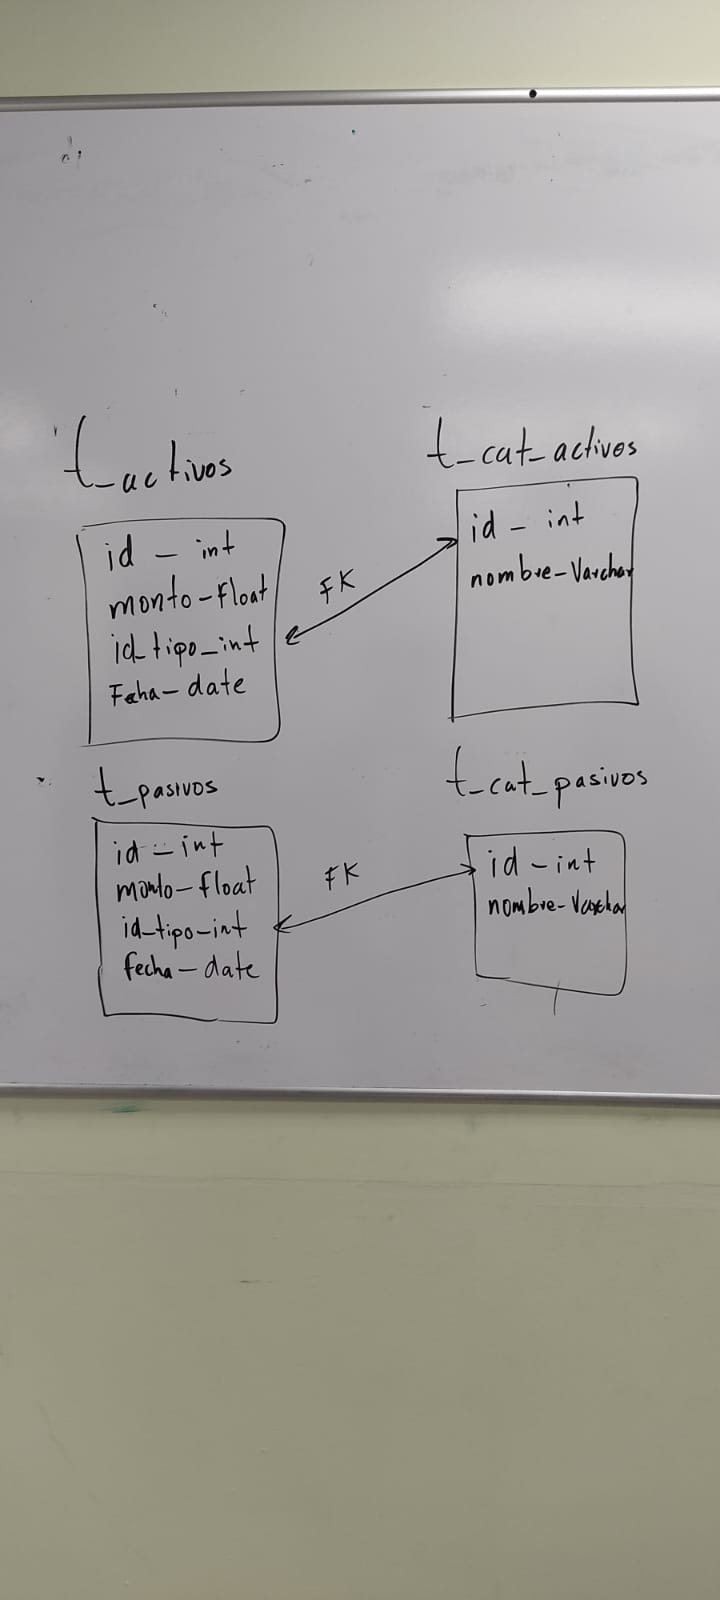 t_activos
id - int
monto-Float
id_tipo_int
Fecha-date
FK
t_cat_activos
id - int
nombre-Varchar
t_pasivos
id - int
monto-float
id_tipo-int
fecha-date
FK
t_cat_pasivos
id-int
nombre-Varchar